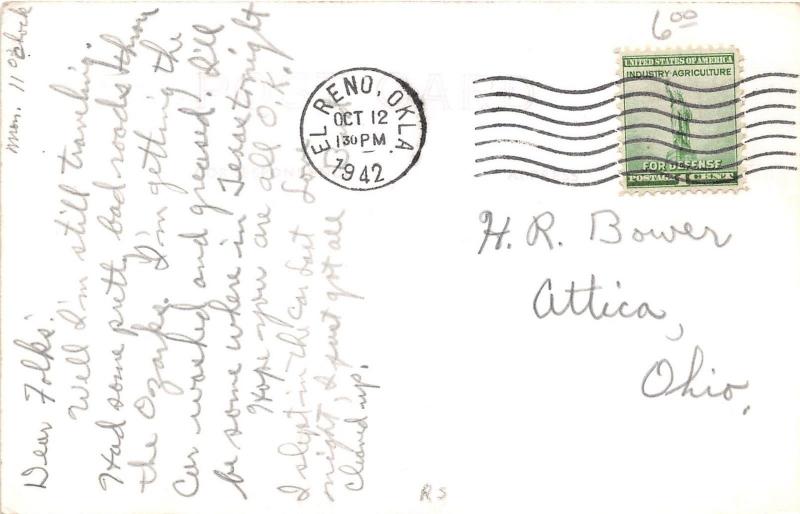 Mon. 11 o'clock
Dear Folks:
Well I'm still traveling.
Had some pretty bad roads thru
the Ozarks. I'm getting the
Car washed and greased. I'll
be some where in Texas tonight
Hope you are all O.K.
I slept in the car last
night, I just got all
cleaned up.
EL RENO, OKLA.
OCT 12
1 30 PM
1942
6 00
UNITED STATES OF AMERICA
INDUSTRY AGRICULTURE
FOR DEFENSE
POSTAGE 1 CENT
H. R. Bower
Attica,
Ohio.
RS